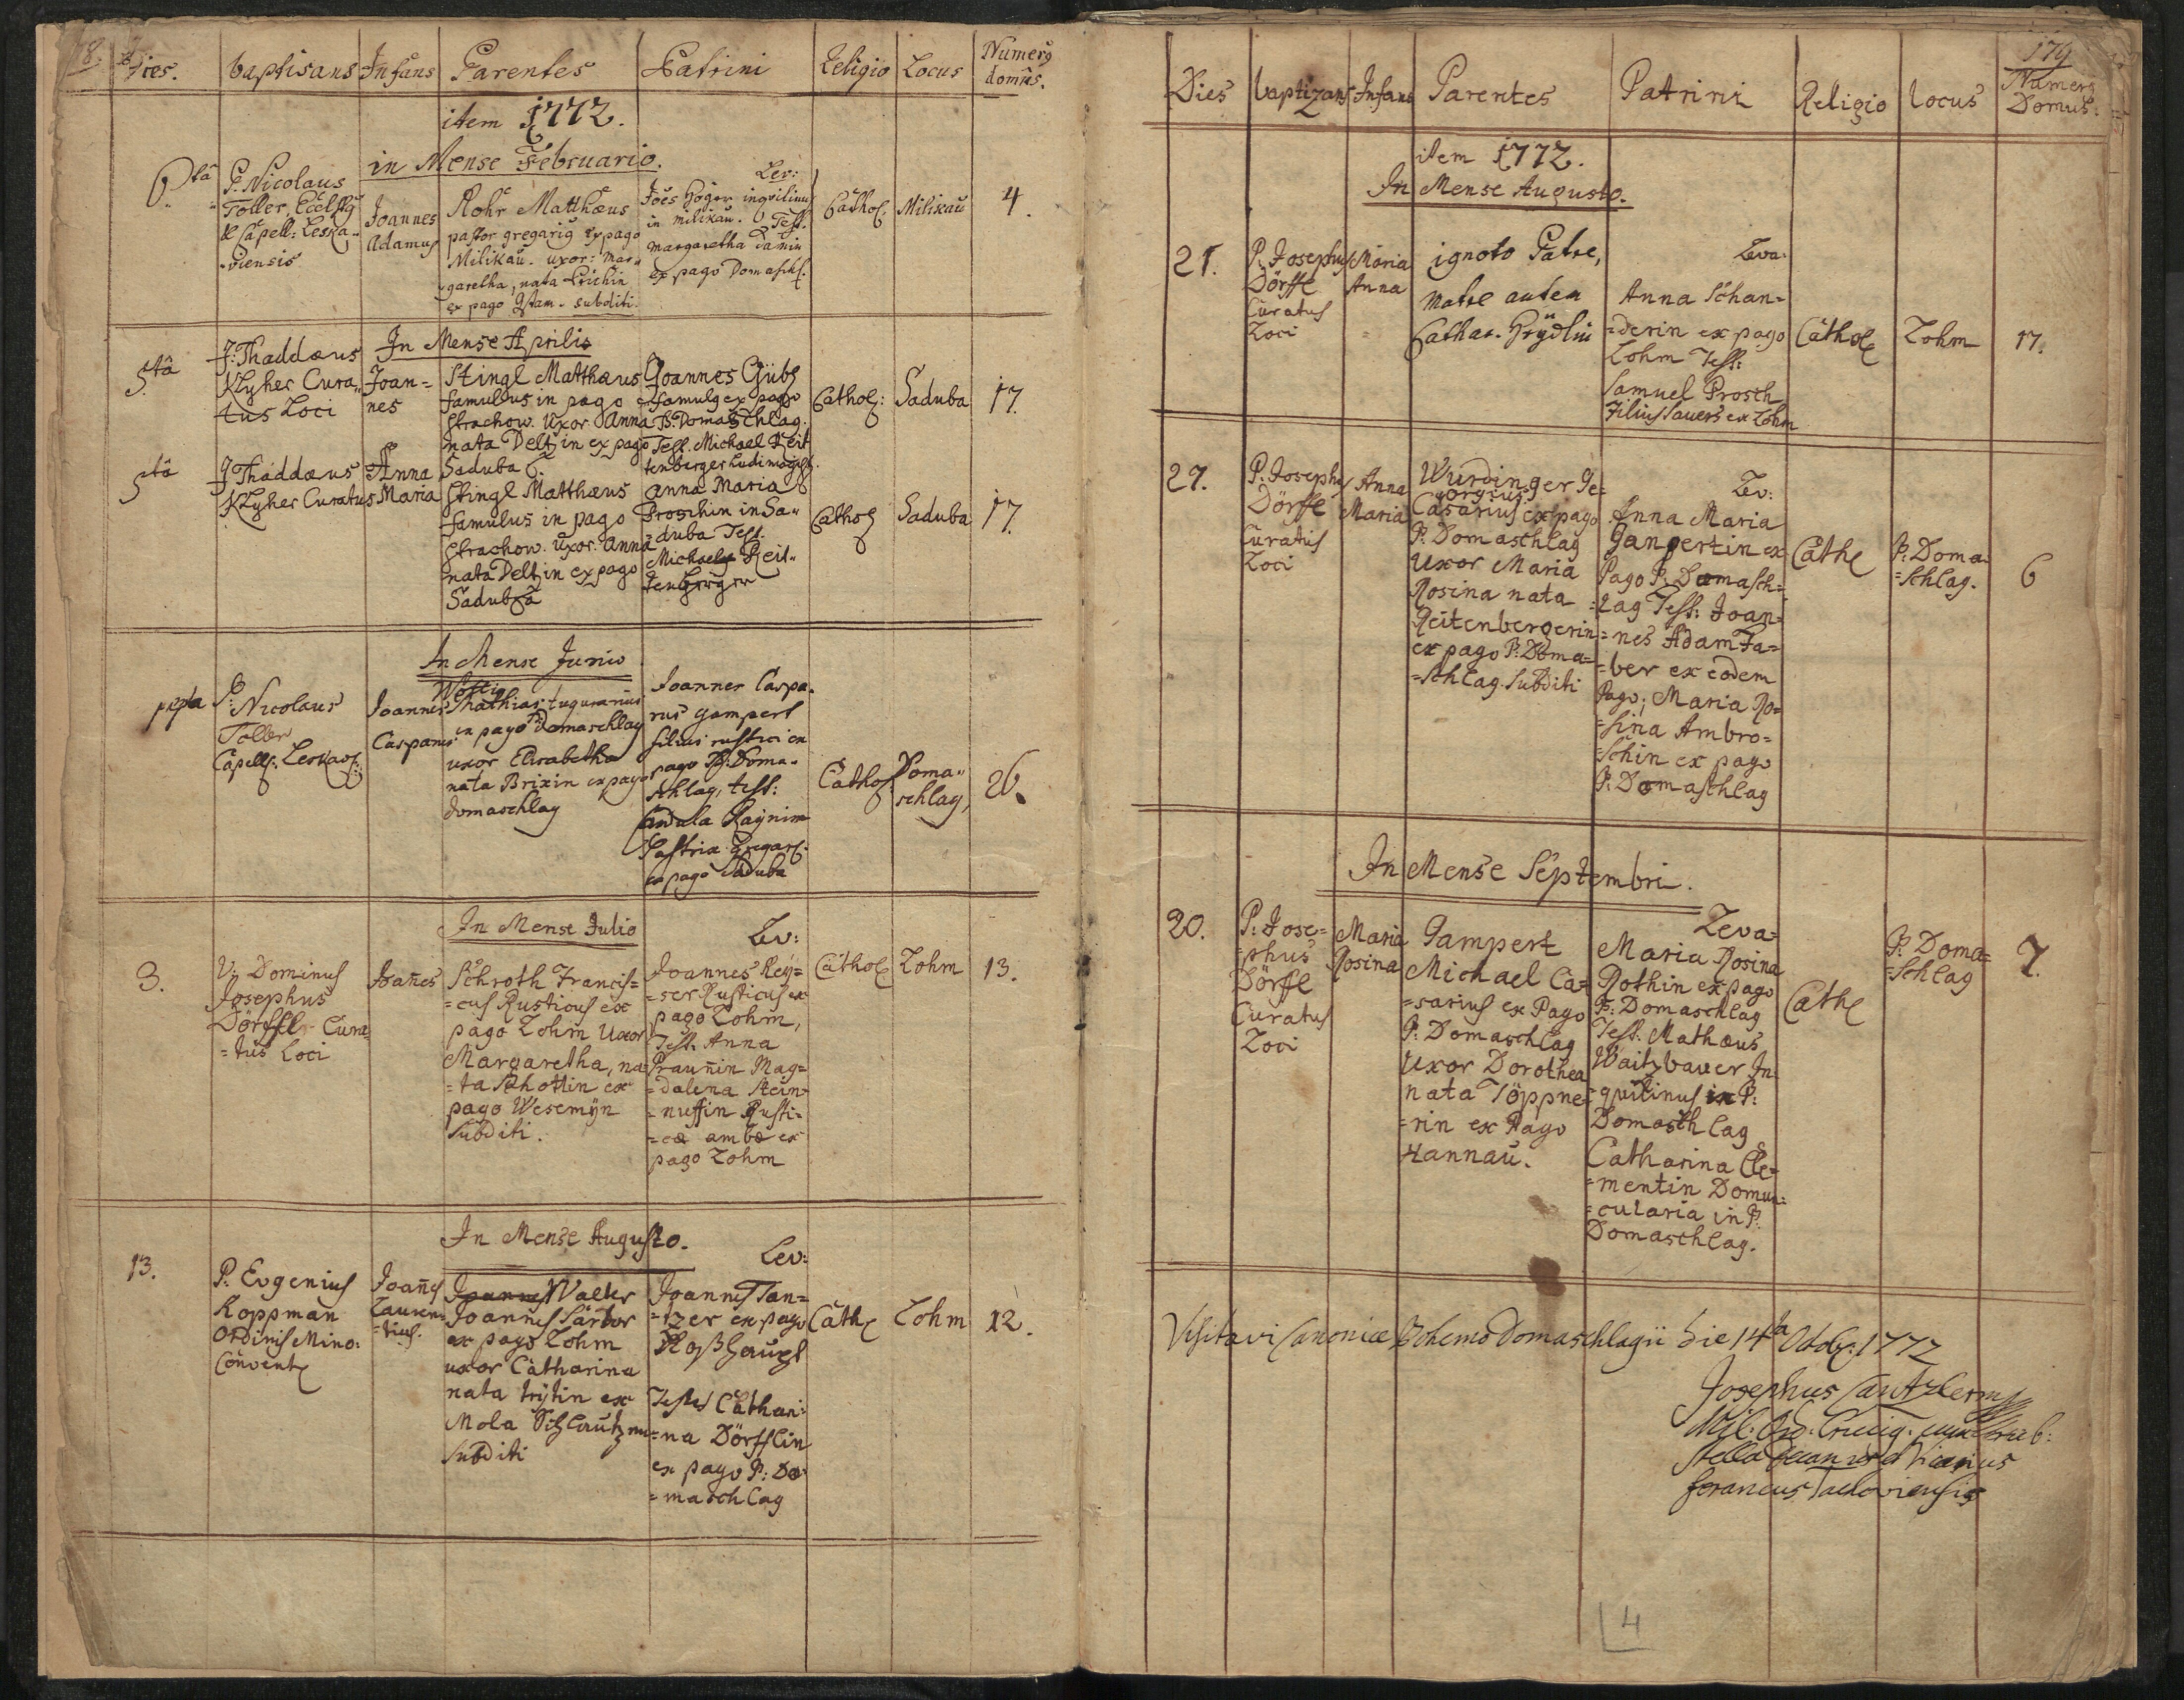 Dies.
baptisans
Infans
Parentes
Patrini
Religio
Locus
Numerq
domûs.
item 1772.
in Mense Februario.
6.tâ
P. Nicolaus
Toller,
& Capell: Leska-
-viensis
Joannes
Adamus
Rohr Matthæus
pastor gregariq ex pago
Milikau. uxor: Mar-
-garetha, nata
ex pago subditi.
Lev:
Joes Höger inqvilinus
in Milikau. Test.
Margaretha
ex pago Domaschl.
Cathol.
Milikau
4.
In Mense Aprilis
5tâ
J: Thaddæus
Klyher Cura-
tus Loci
Joan=
nes
Stingl Matthæus
famullus in pago
Strachow. Uxor Anna
nata Deltzin ex pago
Saduba
Joannes
famulq ex pago
B: Domaschlag.
Test. Michael Reit
tenberger Ludimagist.
Cathol:
Saduba
17.
5tâ
J Thaddæus
Klyher Curatus
Anna
Maria
Stingl Matthæus
famulus in pago
Strachow. Uxor. Anna
nata Deltzin ex pago
Saduba
Anna Maria
Proschin in Sa-
-duba Test.
Michael Reit-
tenberger
Cathol
Saduba
17.
In Mense Junio
P: Nicolaus
Toller
Capell. Leskav.
Joannes
Casparus
Mathias tugurarius
in pago P. Domaschlag
uxor Elisabetha
nata Brixin ex pago
Domaschlag
Joannes Caspa-
rus Gampert
filius rustici ex
pago P. Doma-
schlag, test:
Raynin
Pastrix Gregar.
ex pago Saduba
Cathol.
Doma-
schlag,
26.
In Mense Julio
3.
V: Dominus
Josephus
Dörffl Cura=
=tus Loci
Joañes
Schroth Francis=
=cus Rusticus ex
pago Lohm Uxor
Margaretha, na=
=ta Schottin ex
pago Wesemÿn
Subditi.
Lev:
Joannes Reÿ=
=ser Rusticus ex
pago Lohm,
Test. Anna
Prauñin Mag=
=dalena Stein=
=nussin Rusti=
=cæ ambæ ex
pago Lohm
Cathol
Lohm
13.
In Mense Augusto.
13.
P: Evgenius
Koppman
Ordinis Mino:
Convent
Joañes
Lauren=
=tius.
Joannes Walter
Joannes Sartor
ex pago Lohm
uxor Catharina
nata trÿtin ex
Mola
Subditi
Lev:
Joannes Tan=
=tzer ex pago
Roßhaupt
Testes Cathari=
=na Dörfflin
ex pago P: Do=
=maschlag
Cath
Lohm
12.
179
Dies
baptizans
Infans
Parentes
Patrini
Religio
Locus
Numerq
Domus.
item 1772.
In Mense Augusto.
21.
P. Josephus
Dörffl
Curatus
Loci
Maria
Anna
ignoto Patre,
Matre autem
Cathar. Grÿdlin
Leva:
Anna Schan=
=derin ex pago
Lohm Test:
Samuel Prosch
Filius Sauers ex Lohm
Cathol
Lohm
17.
27.
P. Josephus
Dörffl
Curatus
Loci
Anna
Maria
Würdinger Ge=
orgius
Casarius ex pago
P: Domaschlag
Uxor Maria
Rosina nata
Reitenbergerin
ex pago P: Doma=
=schlag. Subditi
Lev:
Anna Maria
Gampertin ex
Pago P: Domasch=
=lag Test: Joan=
=nes Adam Fa=
=ber ex eodem
Pago; Maria Ro=
=sina Ambro=
=schin ex pago
P: Domaschlag
Cath
P: Doma=
=schlag.
6
In Mense Septembri.
20.
P: Jose=
=phus
Dörffl
Curatus
Loci
Maria
Rosina
Gampert
Michael Ca=
=sarius ex Pago
P: Domaschlag
Uxor Dorothea
nata Töppne=
=rin ex Pago
Hannau.
Leva=
Maria Rosina
Rothin ex pago
P: Domaschlag
Test. Mathæus
Waitzbauer In=
=quilinus in P:
Domaschlag
Catharina Cle=
=mentin Domun=
=cularia in P.
Domaschlag.
Cath
P: Doma=
=schlag
7.
Visitavi Canonice Bohemo Domaschlagii Die 14ta Octobr: 1772
Josephus
Mil: Ord: Crucig. cum rub:
stella Decanus et Vicarius
foraneus Tachoviensis
4